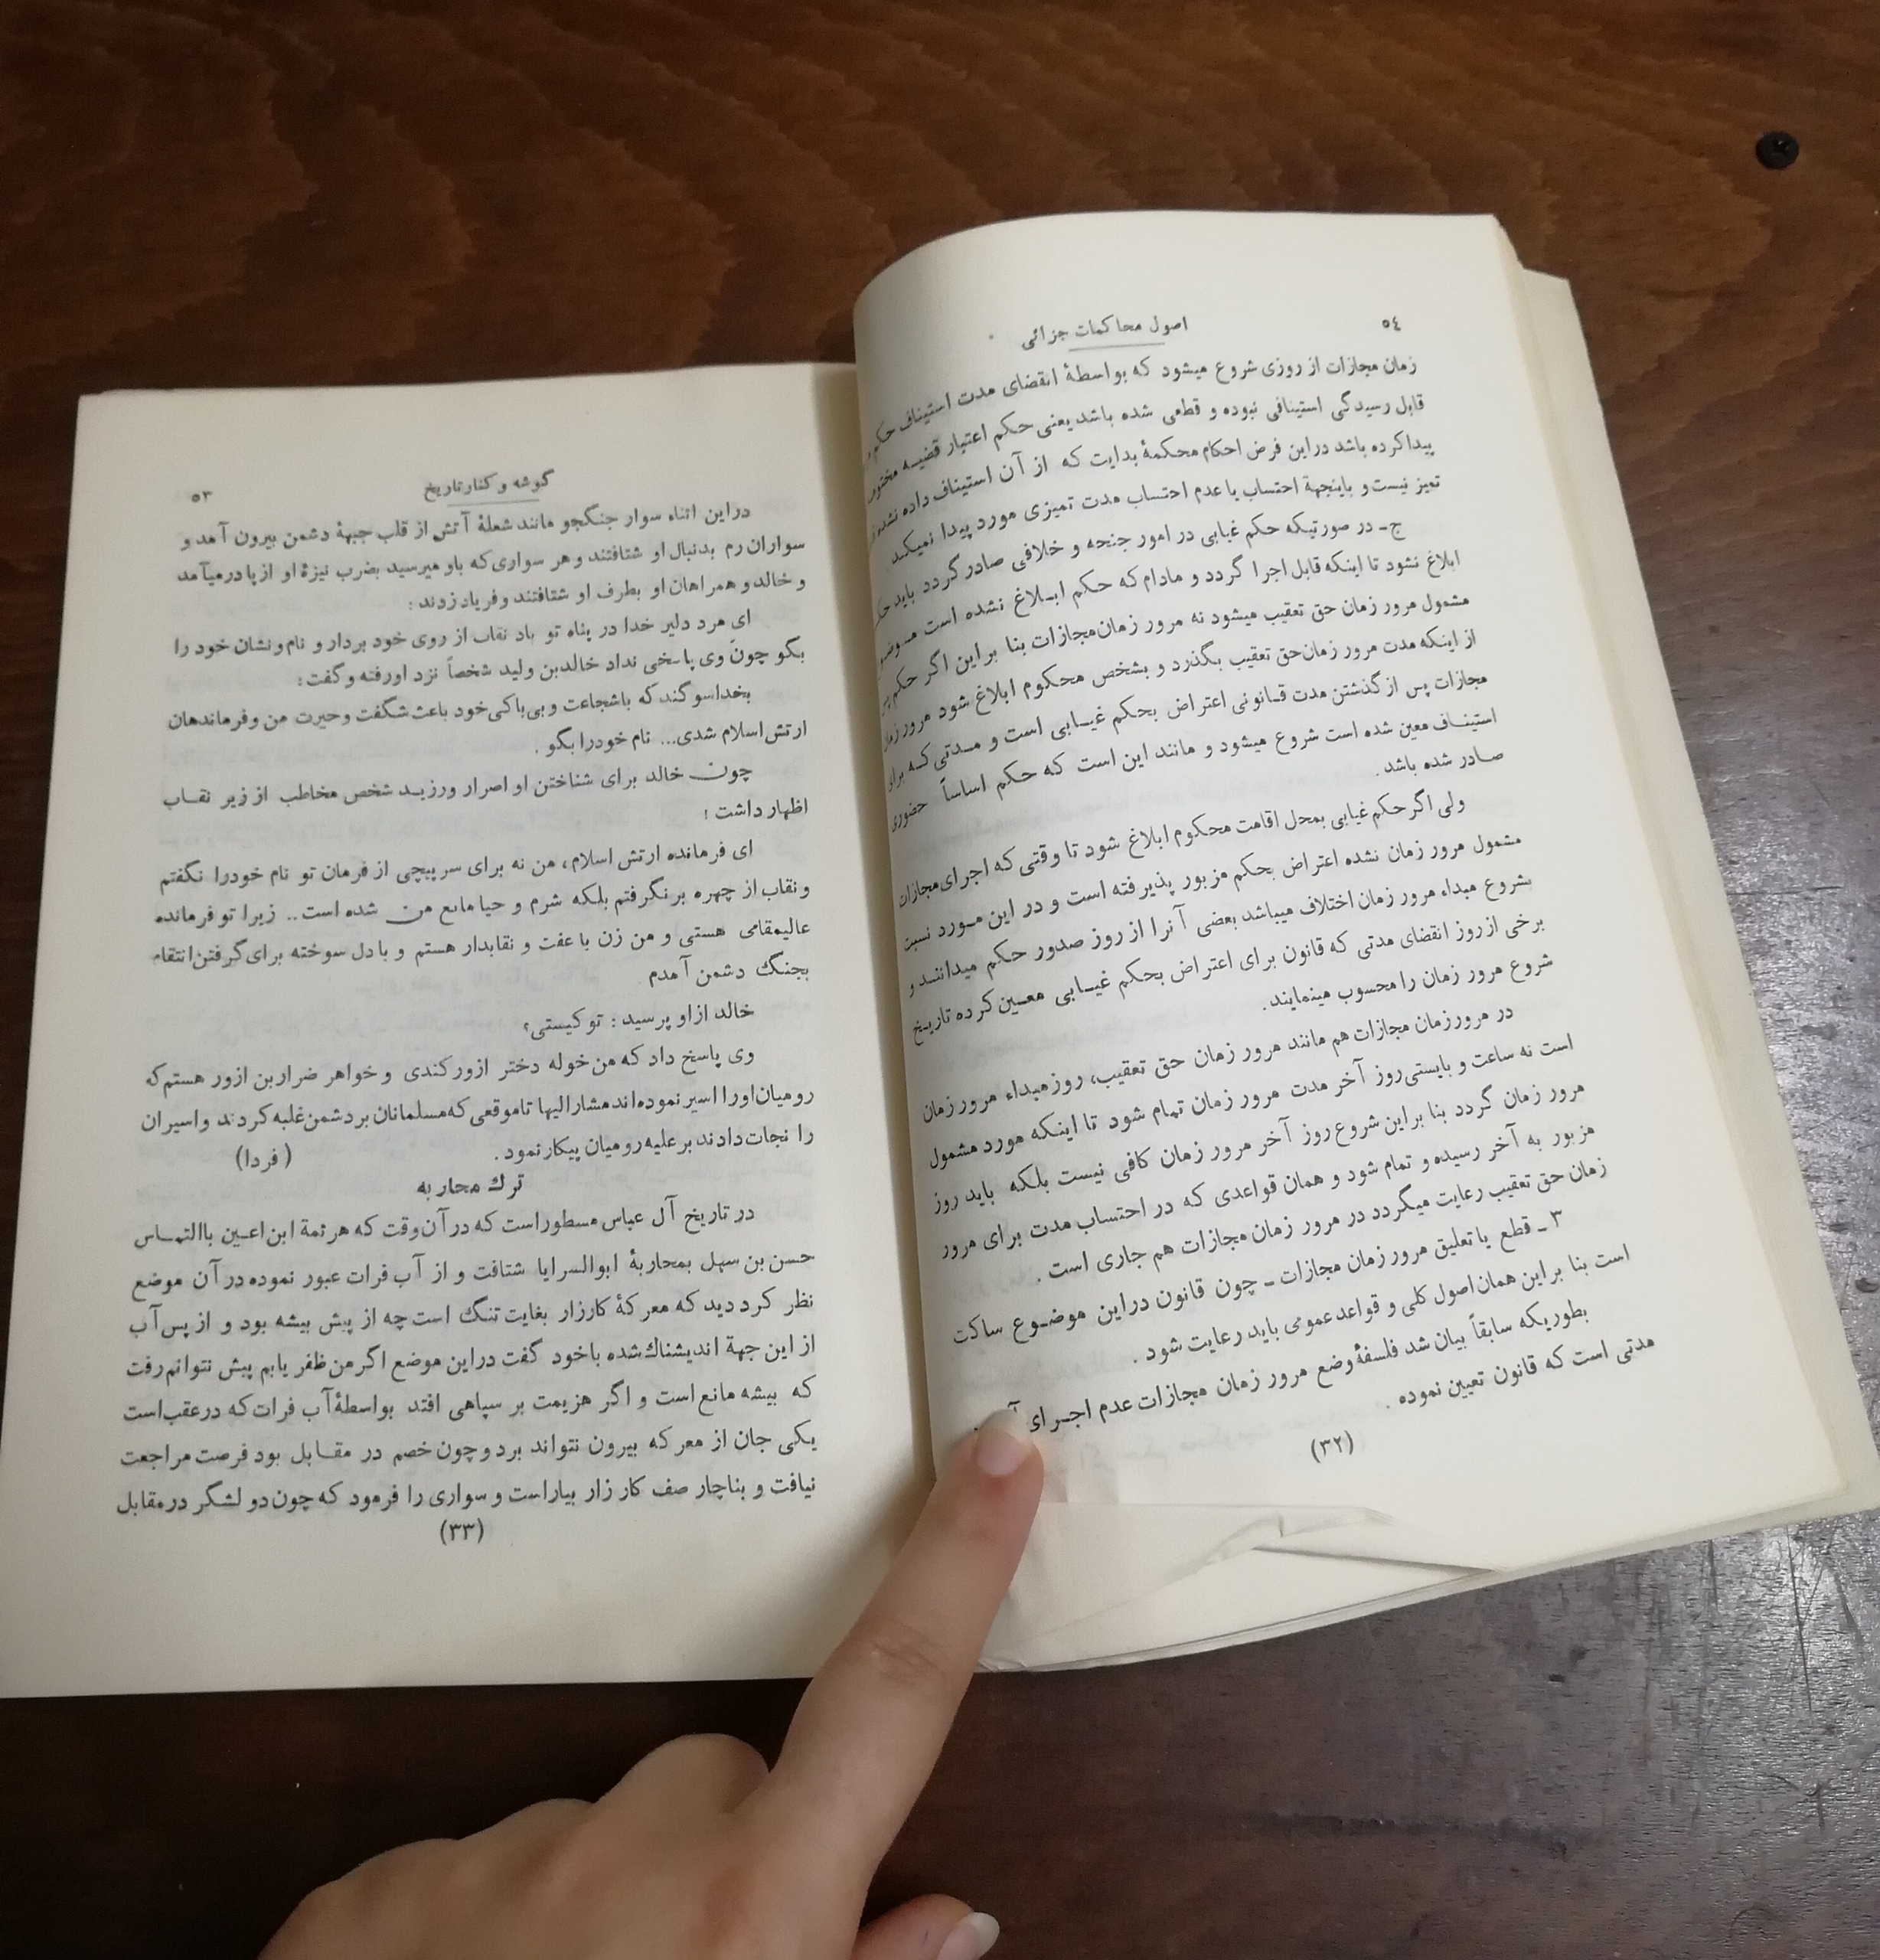 ٥٤
اصول محاكمات جزائی
زمان مجازات از روزی شروع میشود که بواسطهٔ انقضای مدت استیناف حکم
قابل رسیدگی استینافی نبوده و قطعی شده باشد یعنی حکم اعتبار قضیه
پیدا کرده باشد دراین فرض احکام محکمهٔ بدایت که از آن استیناف داده نشده
تمیز نیست و باینجهة احتساب یا عدم احتساب مدت تمیزی مورد پیدا نمیکند
ج - در صورتیکه حکم غیابی در امور جنحه و خلافی صادر گردد باید
ابلاغ نشود تا اینکه قابل اجرا گردد و مادام که حکم ابلاغ نشده است
مشمول مرور زمان حق تعقیب میشود نه مرور زمان مجازات بنا براین اگر حکم
از اینکه مدت مرور زمان حق تعقیب بگذرد و بشخص محکوم ابلاغ شود مرور
مجازات پس از گذشتن مدت قانونی اعتراض بحکم غیابی است و مدتی که برای
استیناف معین شده است شروع میشود و مانند این است که حکم اساساً حضوری
صادر شده باشد .
ولی اگر حکم غیابی بمحل اقامت محکوم ابلاغ شود تا وقتی که اجرای مجازات
مشمول مرور زمان نشده اعتراض بحکم مزبور پذیرفته است و در این مورد نسبت
بشروع مبداء مرور زمان اختلاف میباشد بعضی آنرا از روز صدور حکم میدانند و
برخی از روز انقضای مدتی که قانون برای اعتراض بحکم غیابی معین کرده تاریخ
شروع مرور زمان را محسوب مینمایند .
در مرور زمان مجازات هم مانند مرور زمان حق تعقیب، روز مبداء مرور زمان
است نه ساعت و بایستی روز آخر مدت مرور زمان تمام شود تا اینکه مورد مشمول
مرور زمان گردد بنا براین شروع روز آخر مرور زمان کافی نیست بلکه باید روز
مزبور به آخر رسیده و تمام شود و همان قواعدی که در احتساب مدت برای مرور
زمان حق تعقیب رعایت میگردد در مرور زمان مجازات هم جاری است .
۳ - قطع یا تعلیق مرور زمان مجازات - چون قانون دراین موضوع ساکت
است بنا براین همان اصول کلی و قواعد عمومی باید رعایت شود .
بطوریکه سابقاً بیان شد فلسفهٔ وضع مرور زمان مجازات عدم اجرای
مدتی است که قانون تعیین نموده .
(۳۲)
گوشه و کنار تاریخ
۵۳
دراین اثناء سوار جنگجو مانند شعلهٔ آتش از قلب جبههٔ دشمن بیرون آمد و
سواران رم بدنبال او شتافتند و هر سواری که باو میرسید بضرب نیزهٔ او از پا درمیآمد
و خالد و همراهان او بطرف او شتافتند و فریاد زدند :
ای مرد دلیر خدا در پناه تو باد نقاب از روی خود بردار و نام و نشان خود را
بگو چون وی پاسخی نداد خالدبن ولید شخصاً نزد او رفته و گفت :
بخدا سوگند که باشجاعت و بی باکی خود باعث شگفت و حیرت من و فرماندهان
ارتش اسلام شدی... نام خودرا بگو .
چون خالد برای شناختن او اصرار ورزید شخص مخاطب از زیر نقاب
اظهار داشت :
ای فرمانده ارتش اسلام، من نه برای سرپیچی از فرمان تو نام خودرا نگفتم
و نقاب از چهره برنگرفتم بلکه شرم و حیا مانع من شده است .. زیرا تو فرمانده
عالیمقامی هستی و من زن با عفت و نقابدار هستم و با دل سوخته برای گرفتن انتقام
بجنگ دشمن آمدم
خالد از او پرسید : تو کیستی؟
وی پاسخ داد که من خوله دختر ازور کندی و خواهر ضرار بن ازور هستم که
رومیان او را اسیر نموده اند مشار الیها تا موقعی که مسلمانان بر دشمن غلبه کردند و اسیران
را نجات دادند بر علیه رومیان پیکار نمود .
(فردا)
ترك محاربه
در تاریخ آل عباس مسطور است که در آن وقت که هرثمة ابن اعین باالتماس
حسن بن سهل بمحاربهٔ ابوالسرایا شتافت و از آب فرات عبور نموده در آن موضع
نظر کرد دید که معرکهٔ کارزار بغایت تنگ است چه از پیش بیشه بود و از پس آب
از این جهة اندیشناك شده باخود گفت دراین موضع اگر من ظفر یابم پیش نتوانم رفت
که بیشه مانع است و اگر هزیمت بر سپاهی افتد بواسطهٔ آب فرات که در عقب است
یکی جان از معرکه بیرون نتواند برد و چون خصم در مقابل بود فرصت مراجعت
نیافت و بناچار صف کارزار بیاراست و سواری را فرمود که چون دو لشگر در مقابل
(۳۳)